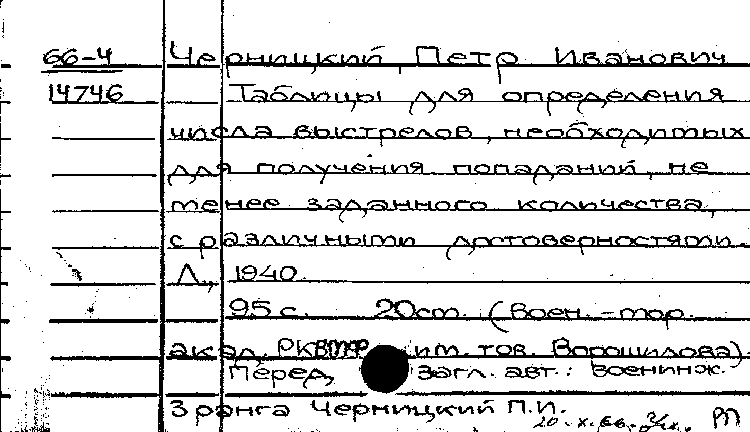 66-4 Черницкий, Петр Иванович
14746 Таблицы для определения
числа выстрелов, необходимых
для получения попаданий, не
менее заданного количества,
с различными достоверностями.
Л., 1940.
95 с. 20 cm. (Воен.-мор.
акад. РКВМФ им. тов. Ворошилова)
Перед загл. авт.: Военинж.
3 ранга Черницкий П.И.
20.X.66.